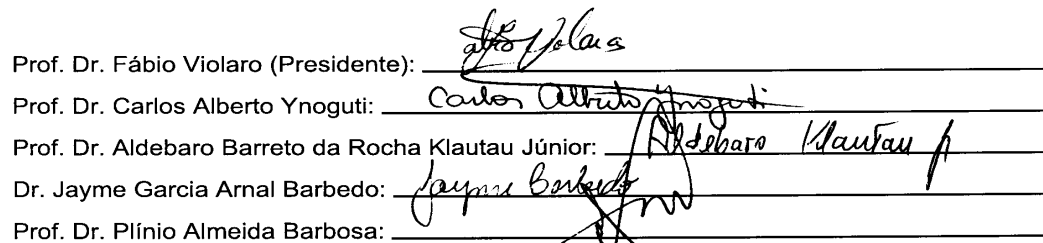 Prof. Dr. Fábio Violaro (Presidente): Fábio Violaro
Prof. Dr. Carlos Alberto Ynoguti: Carlos Alberto Ynoguti
Prof. Dr. Aldebaro Barreto da Rocha Klautau Júnior: Aldebaro Klautau Jr
Dr. Jayme Garcia Arnal Barbedo: Jayme Barbedo
Prof. Dr. Plínio Almeida Barbosa: